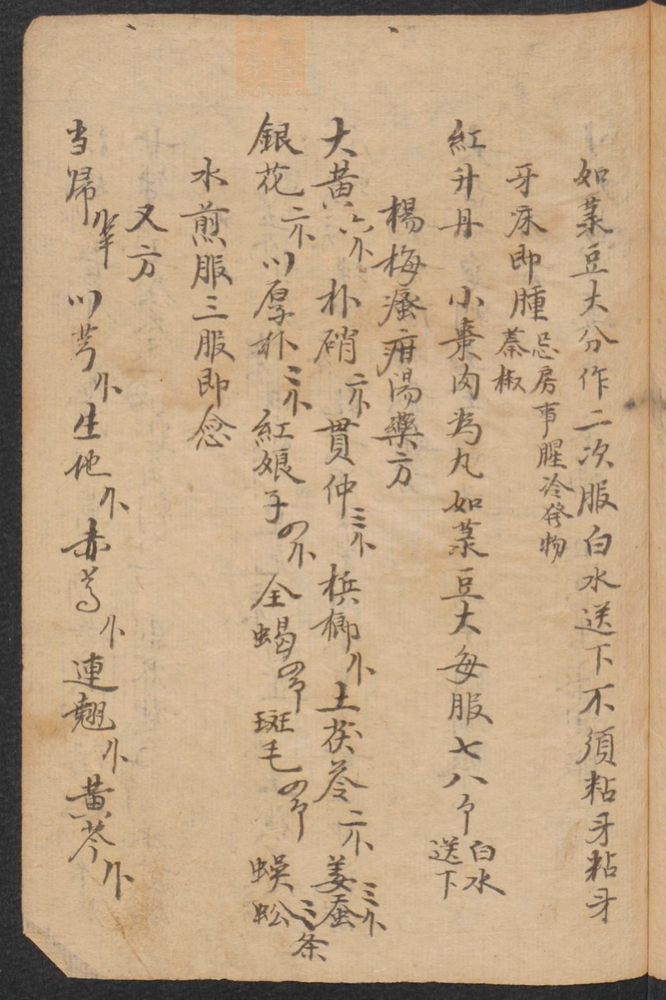 如菉豆大分作二次服白水送下不須粘牙粘牙
牙床即腫忌房事腥冷發物
蓁椒
紅升丹 小棗肉為丸如菉豆大每服七八个白水
送下
楊梅瘡疳湯藥方
大黃六 朴硝二 貫仲三 梹榔 土茯苓二 姜蚕三
銀花二 川厚朴三 紅娘子 全蝎 斑毛 蜈蚣三条
水煎服三服即愈
又方
当归 川芎 生地 赤芍 連翹 黃芩